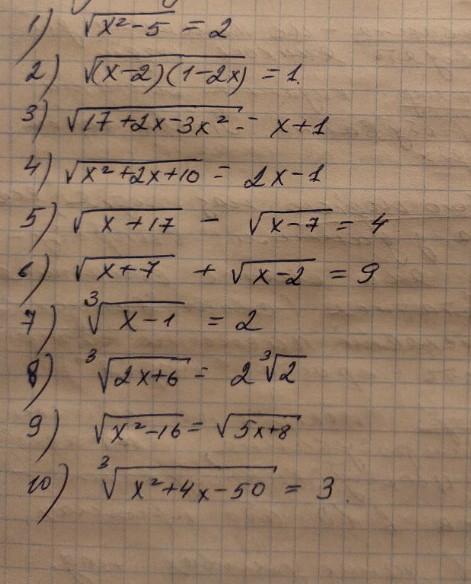 1) √(x²-5) = 2
2) √((x-2)(1-2x)) = 1.
3) √(17+2x-3x²) = x+1
4) √(x²+2x+10) = 2x-1
5) √(x+17) - √(x-7) = 4
6) √(x+7) + √(x-2) = 9
7) ³√(x-1) = 2
8) ³√(2x+6) = 2³√2
9) √(x²-16) = √(5x+8)
10) ³√(x²+4x-50) = 3.